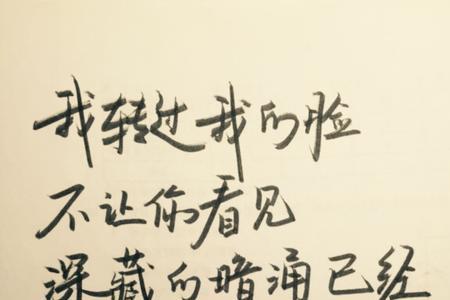 我转过我的脸
不让你看见
深藏的暗涌已经